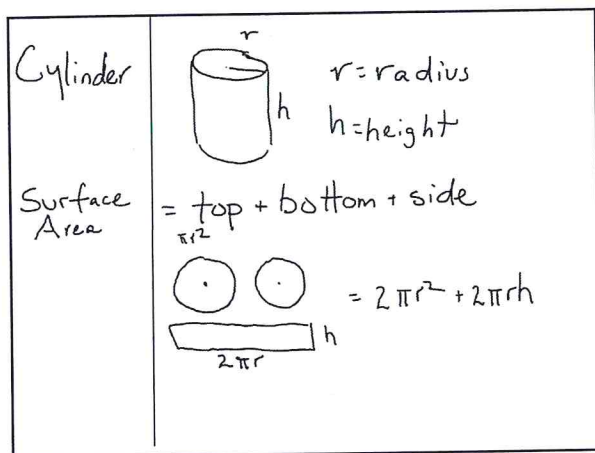 Cylinder
r
h
r = radius
h = height
Surface
Area
= top + bottom + side
πr²
= 2πr² + 2πrh
h
2πr